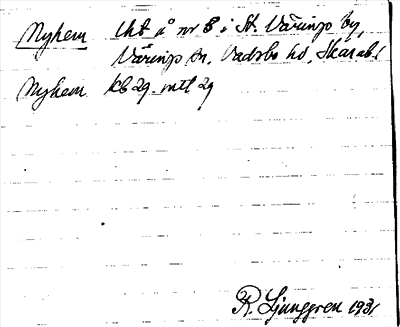 Nyhem Uht å nr 8 i St. Värings by,
Värings sn, Vadsbo hd, Skarab.l
Nyhem KB 29 mtl 29
R. Ljunggren 1931